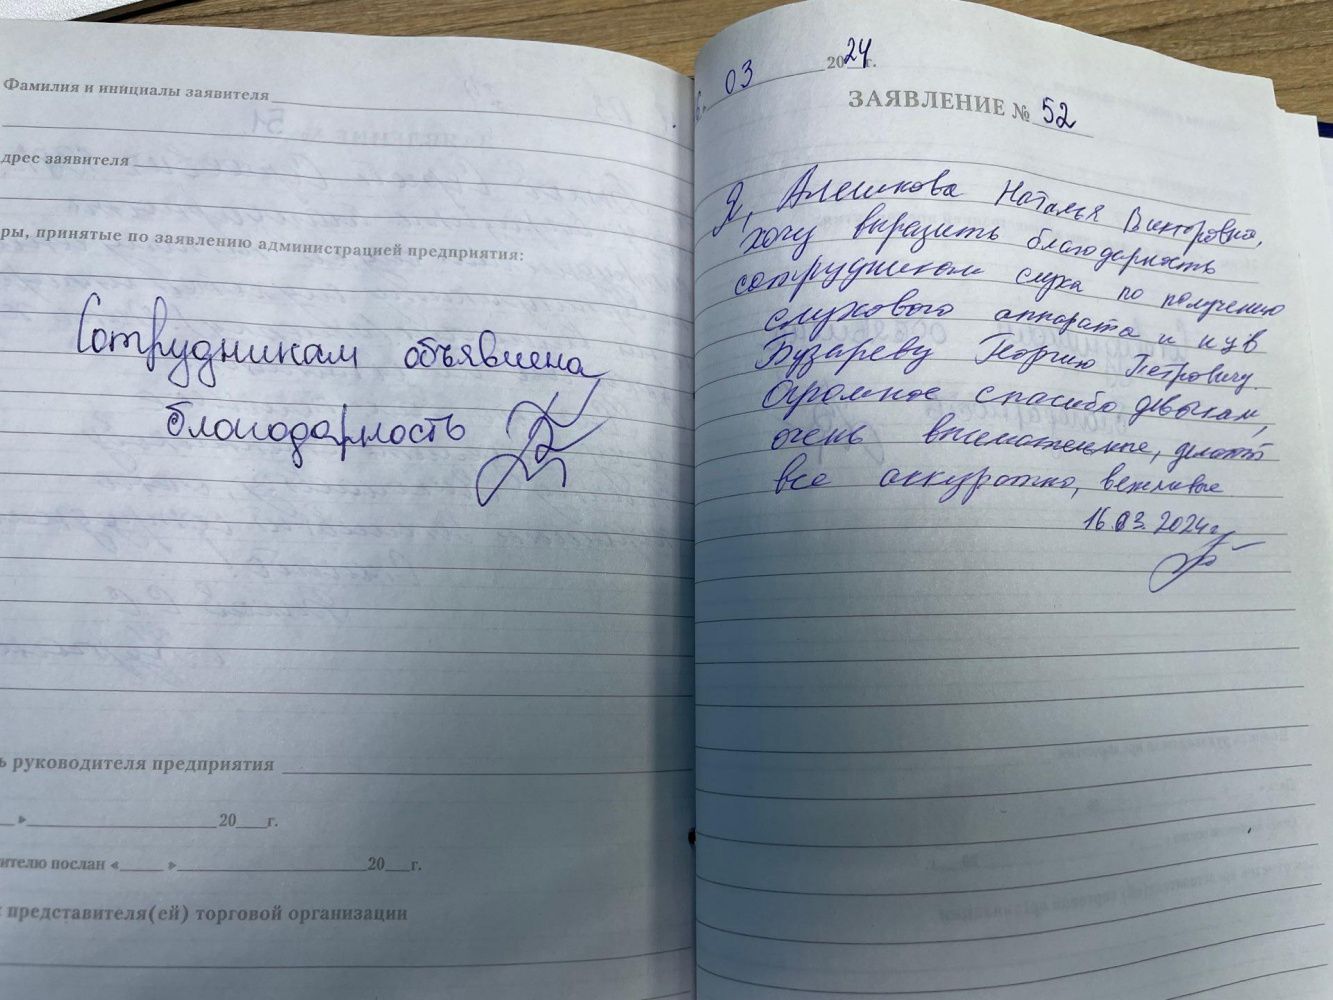 Фамилия и инициалы заявителя
дрес заявителя
ры, принятые по заявлению администрацией предприятия:
Сотрудникам объявлена
благодарность
ь руководителя предприятия
» 20 г.
ителю послан « » 20 г.
представителя(ей) торговой организации
03 2024 г.
ЗАЯВЛЕНИЕ № 52
Я, Алешкова Наталья Викторовна,
хочу выразить благодарность
сотрудникам слуха по получению
слухового аппарата и
Бузареву Георгию Петровичу.
Огромное спасибо девочкам,
очень внимательные, делают
все аккуратно, вежливые
16.03.2024г